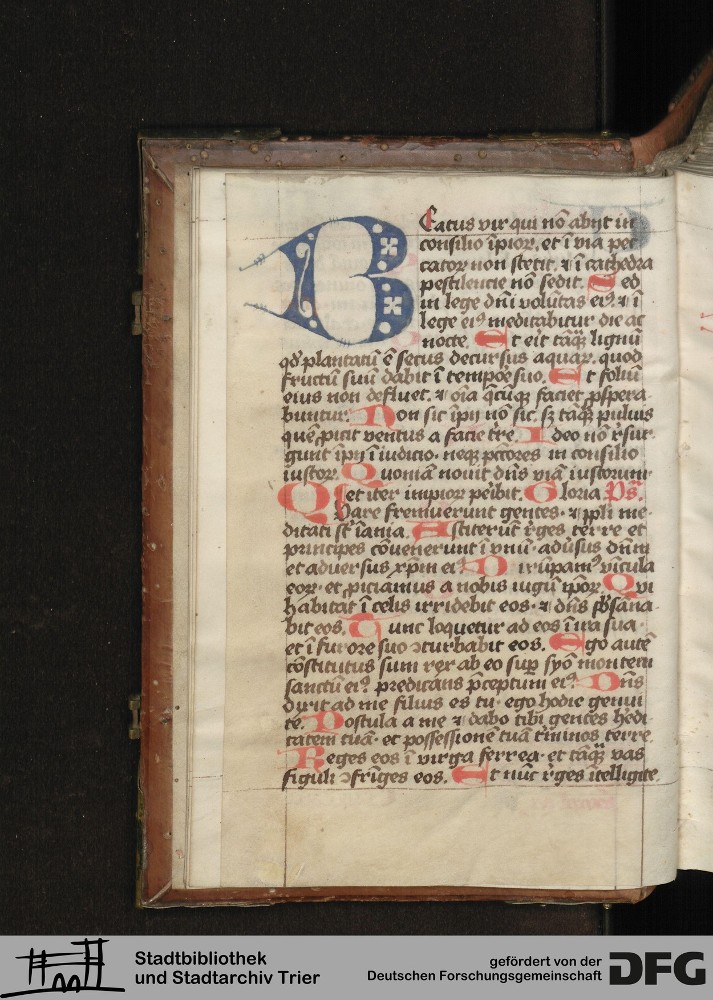 Beatus vir qui nō abijt in
consilio īpior. et ī via pec
cator non stetit. ⁊ ī cathedra
pestilencie nō sedit. Sed
in lege dn̄i volūtas eiꝰ. ⁊ ī
lege eiꝰ meditabitur die ac
nocte. Et eīt tāqȝ lignū
qd̓ plantatū ē secus decursus aquaꝝ. quod
fructū suū dabit ī tempoꝛe suo. Et foliū
eius non defluet. ⁊ oīa q̄cūqȝ faciet ꝓspera
buntur. Non sic īpij nō sic. sȝ tāqȝ puluis
quē ꝓicit ventus a facie tr̄e. Ideo nō r̓sur
gunt īpij ī iudicio. neqȝ pctōres in consilio
iustoꝝ. Quoniā nouit dn̄s viā iustorum
et iter impioꝝ peībit. Gloria Ps̄.
Quare fremuerunt gentes. ⁊ ppl̄i me
ditati st̄ īania. Astiterūt r̓ges terre et
principes cōvenerunt ī vnū. adūsus dn̄m
et adversus xp̄m eiꝰ. Dirūpamꝰ vīcula
eoꝝ. et ꝓiciamus a nobis iugū ip̄oꝝ. Qui
habitat ī celis irridebit eos. ⁊ dn̄s sb̄sāna
bit eos. Tunc loquetur ad eos ī ira sua.
et ī furore suo ꝯturbabit eos. Ego autē
cōstitutus sum rex ab eo sup̄ syō montem
sanctū eiꝰ. predicans p̄ceptum eiꝰ. Dn̄s
dixit ad me filius es tu. ego hodie genui
te. Postula a me ⁊ dabo tibi gentes h̓edi
tatem tuā. et possessionē tuā t̓minos terre.
Reges eos ī virga ferrea. et tāqȝ vas
figuli ꝯfrīges eos. Et nūc r̓ges ītelligite.
Stadtbibliothek
und Stadtarchiv Trier
gefördert von der
Deutschen Forschungsgemeinschaft
DFG